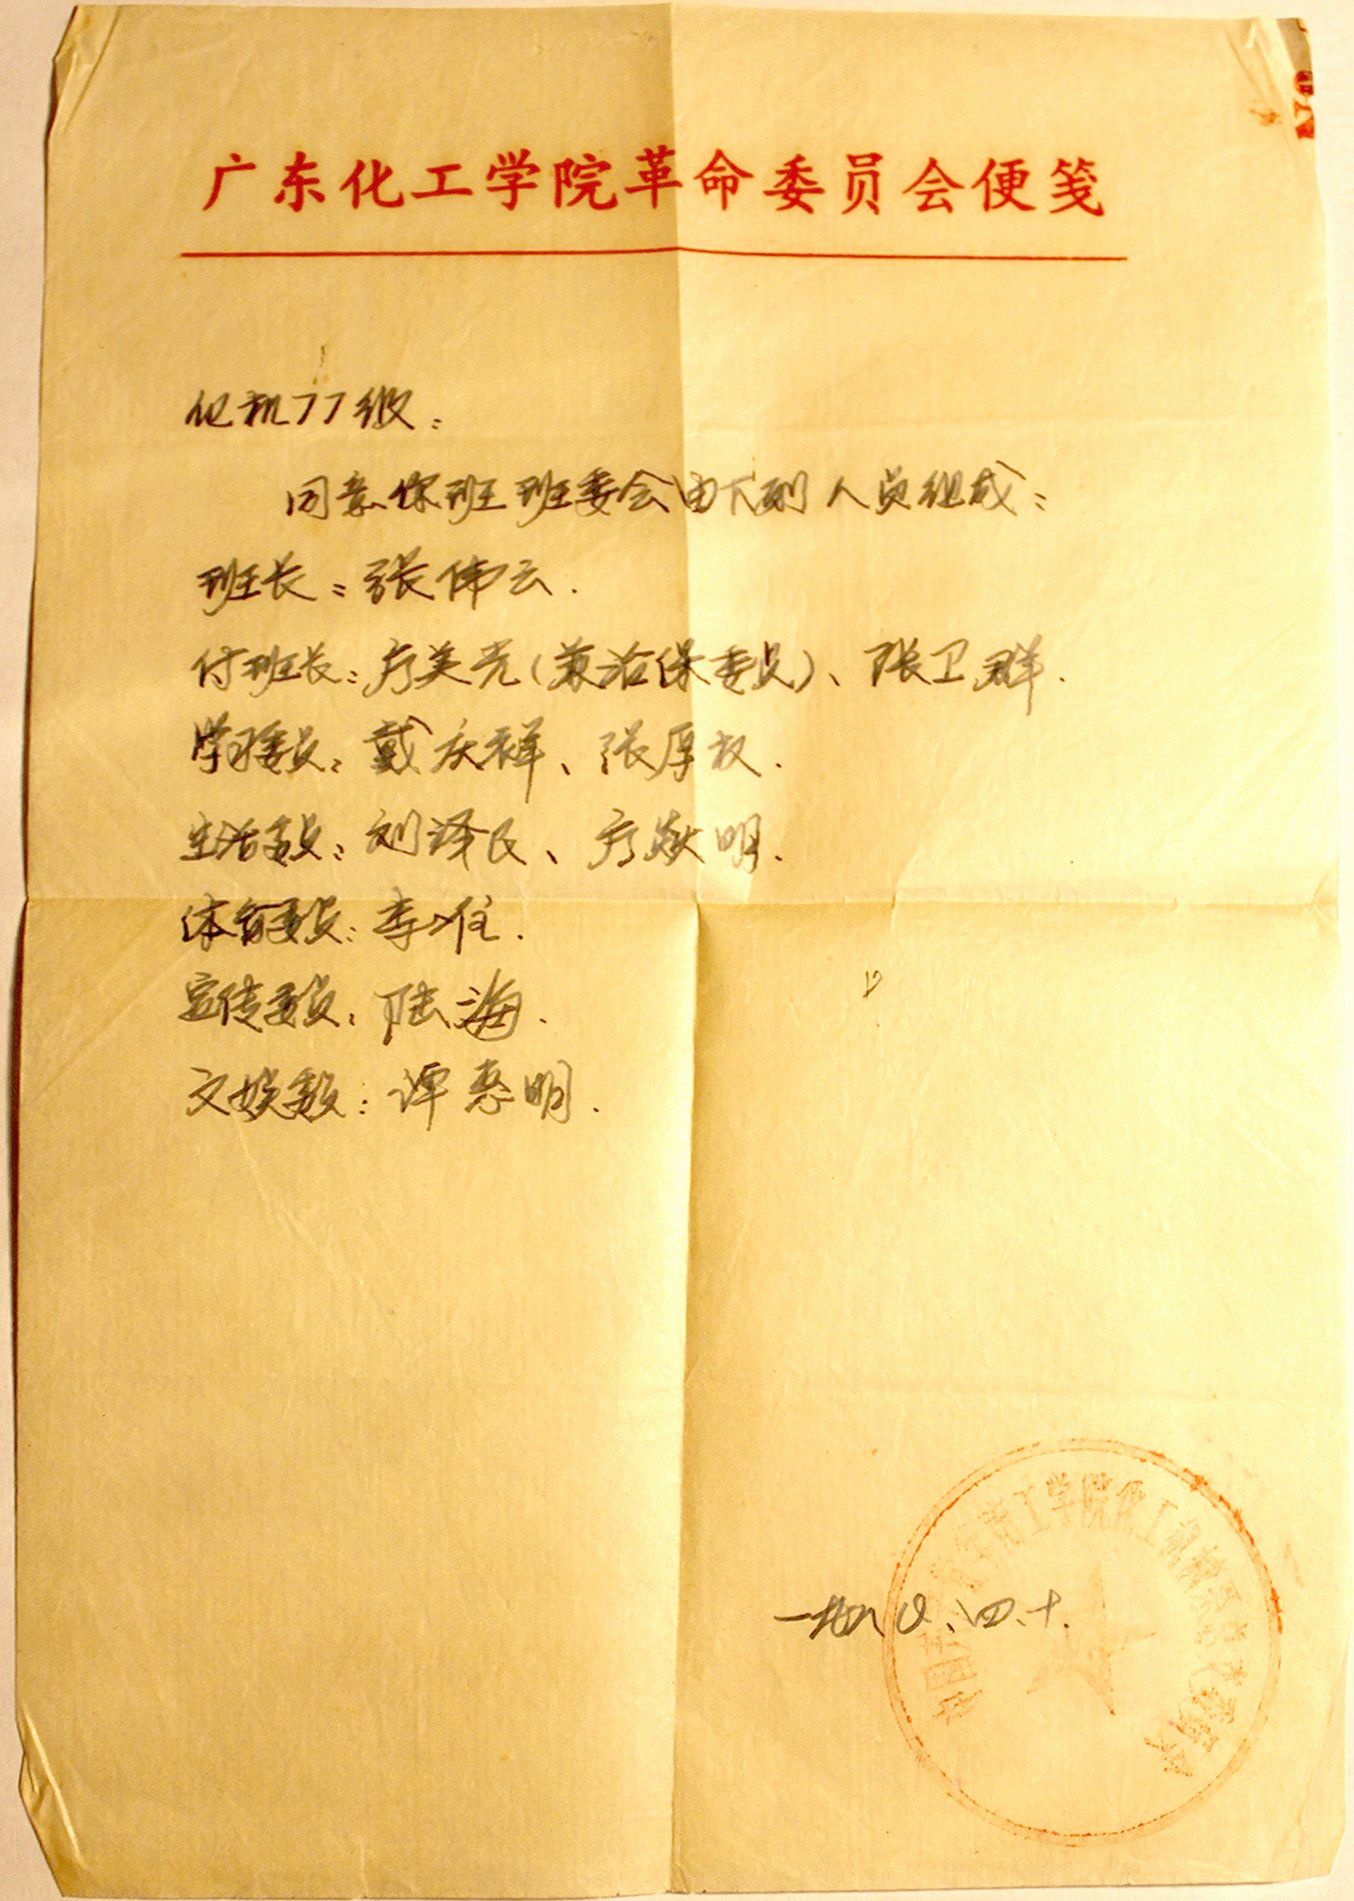 广东化工学院革命委员会便笺
化机77级：
同意你班班委会由下列人员组成：
班长：张伟云.
付班长：美光(兼治保委员)、张卫群.
学习委员：戴庆祥、张厚权.
生活委员：刘泽民、明.
体育委员：李
宣传委员：陆海.
文娱委员：谭惠明.
一九八〇、四、十.
工学院化工机械系